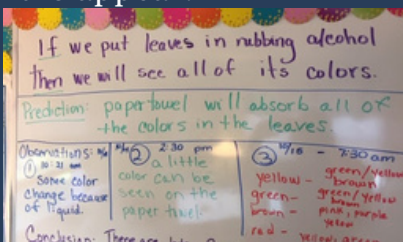 If we put leaves in rubbing alcohol
then we will see all of its colors.
Prediction: paper towel will absorb all of
the colors in the leaves.
Observations:
① 10:21 am
Some color
change because
of liquid.
② 2:30 pm
a little
color can be
seen on the
paper towel
③ 10/18 - 7:30 am
yellow - green/yellow
brown
green - green/yellow
brown
brown - pink, purple
yellow
red - yellow, green
Conclusion: There are